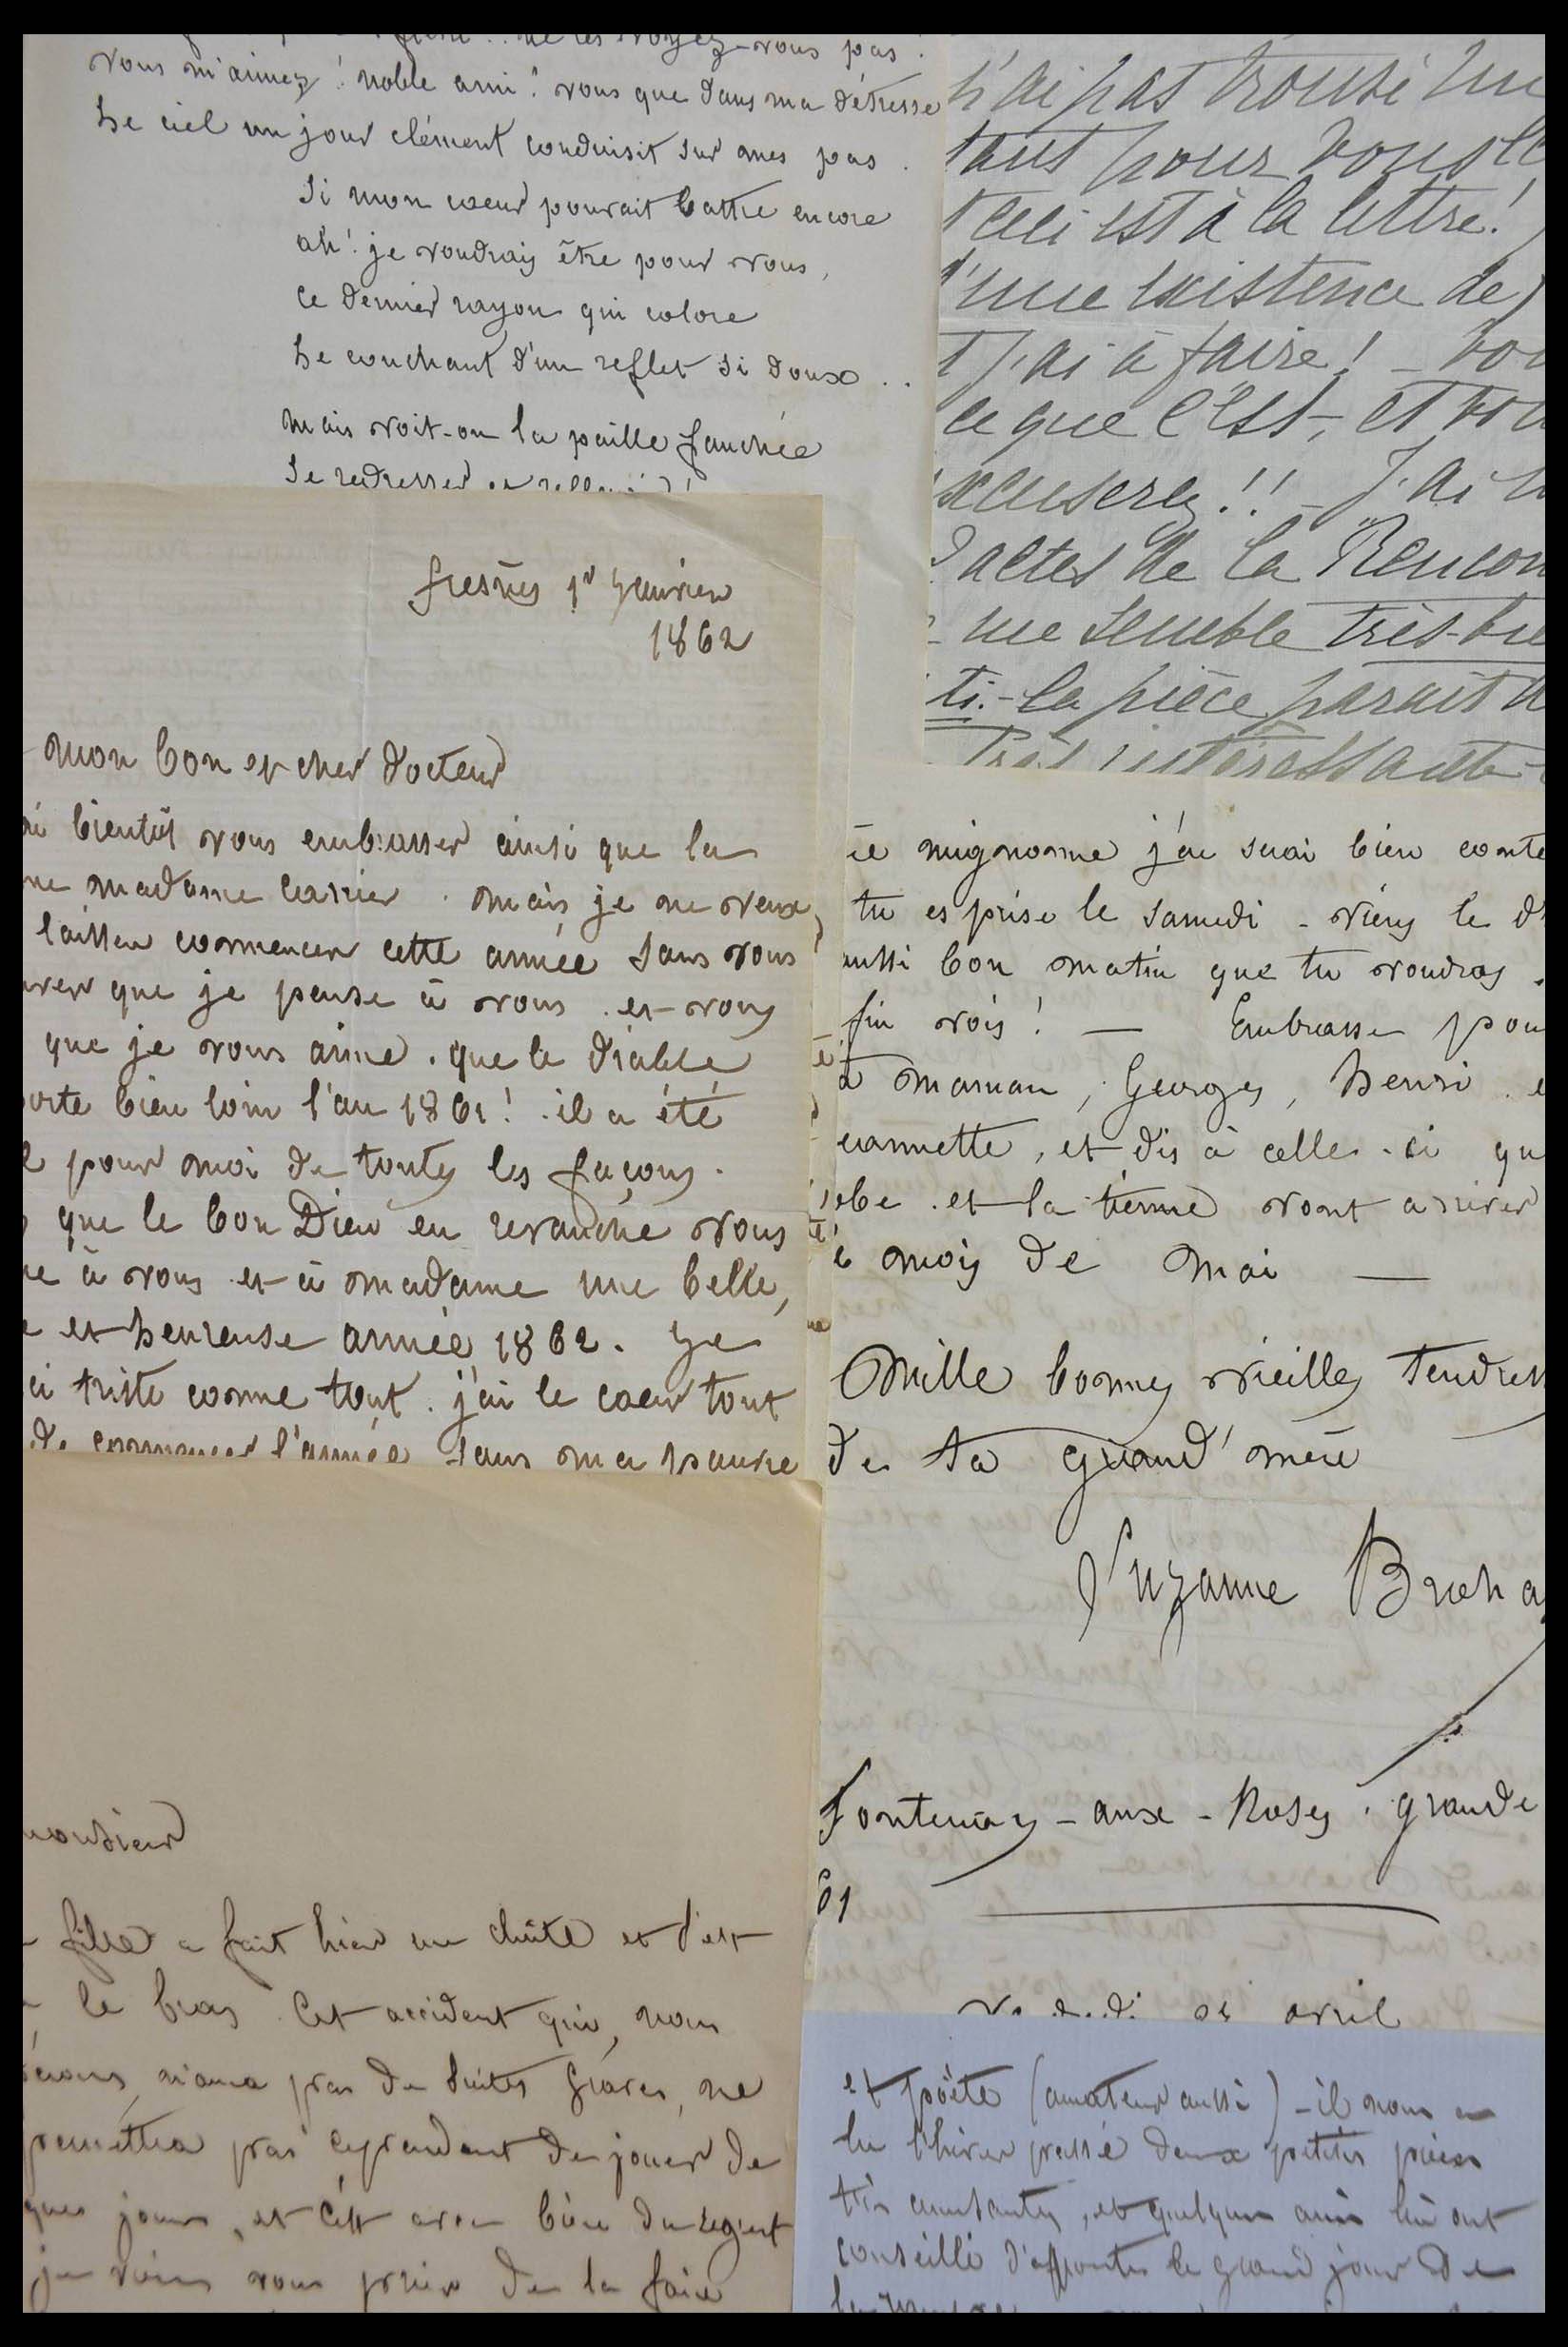 vous pas!
vous m'aimez! noble ami! vous que dans ma détresse
Le ciel un jour clément conduisit sur mes pas.
Si mon cœur pouvait battre encore
ah! je voudrais être pour vous,
ce dernier rayon qui colore
Le couchant d'un reflet si doux...
mais voit-on la paille fauchée
Se redresser
n'ai pas trouvé un
tant pour vous
ceci est à la lettre!
d'une existence de
j'ai à faire! - vou
ce que c'est, et vou
xcuserez!! - J'ai
actes de la Rencon
me semble très-bie
ti. - la pièce parait
très intéressante
fresnes 1r janvier
1862
mon bon et cher docteur
ai bientôt vous embrasser ainsi que la
ne madame Carrier. mais je ne veux
laisser commencer cette année sans vous
que je pense à vous et vous
que je vous aime. que le diable
porte bien loin l'an 1861! il a été
pour moi de toutes les façons.
que le bon Dieu en revanche vous
à vous et à madame une belle,
et heureuse année 1862. je
ci triste comme tout. j'ai le cœur tout
de commencer l'année sans ma pauvre
mignonne j'en serai bien conte
tu es prise le samedi - viens le d
aussi bon matin que tu voudras.
fin vois! — Embrasse pou
a maman, Georges, henri. e
eannette, et dis à celle-ci qu
obe et la tienne vont arriver
e mois de mai —
Mille bonnes vieilles tendress
de ta grand'mère
Suzanne Broha
Fontenay-aux-Roses. grande
61
avril
monsieur
fille a fait hier une chûte et s'est
le bras. Cet accident qui, nous
n'aura pas de suites graves, ne
permettra pas cependant de jouer de
ques jours, et c'est avec bien du regret
je viens vous prier de la faire
et poète (amateur aussi) - il nous a
lu l'hiver passé deux petites pièces
très amusantes, et quelques amis lui ont
conseillé d'affronter le grand jour de